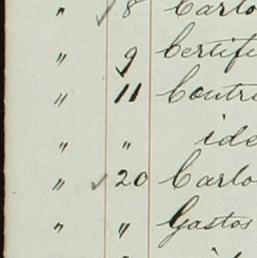 " ✓ 8 Carlo
" 9 Certifi
" 11 Contri
" " ide
" ✓ 20 Carlo
" " Gastos